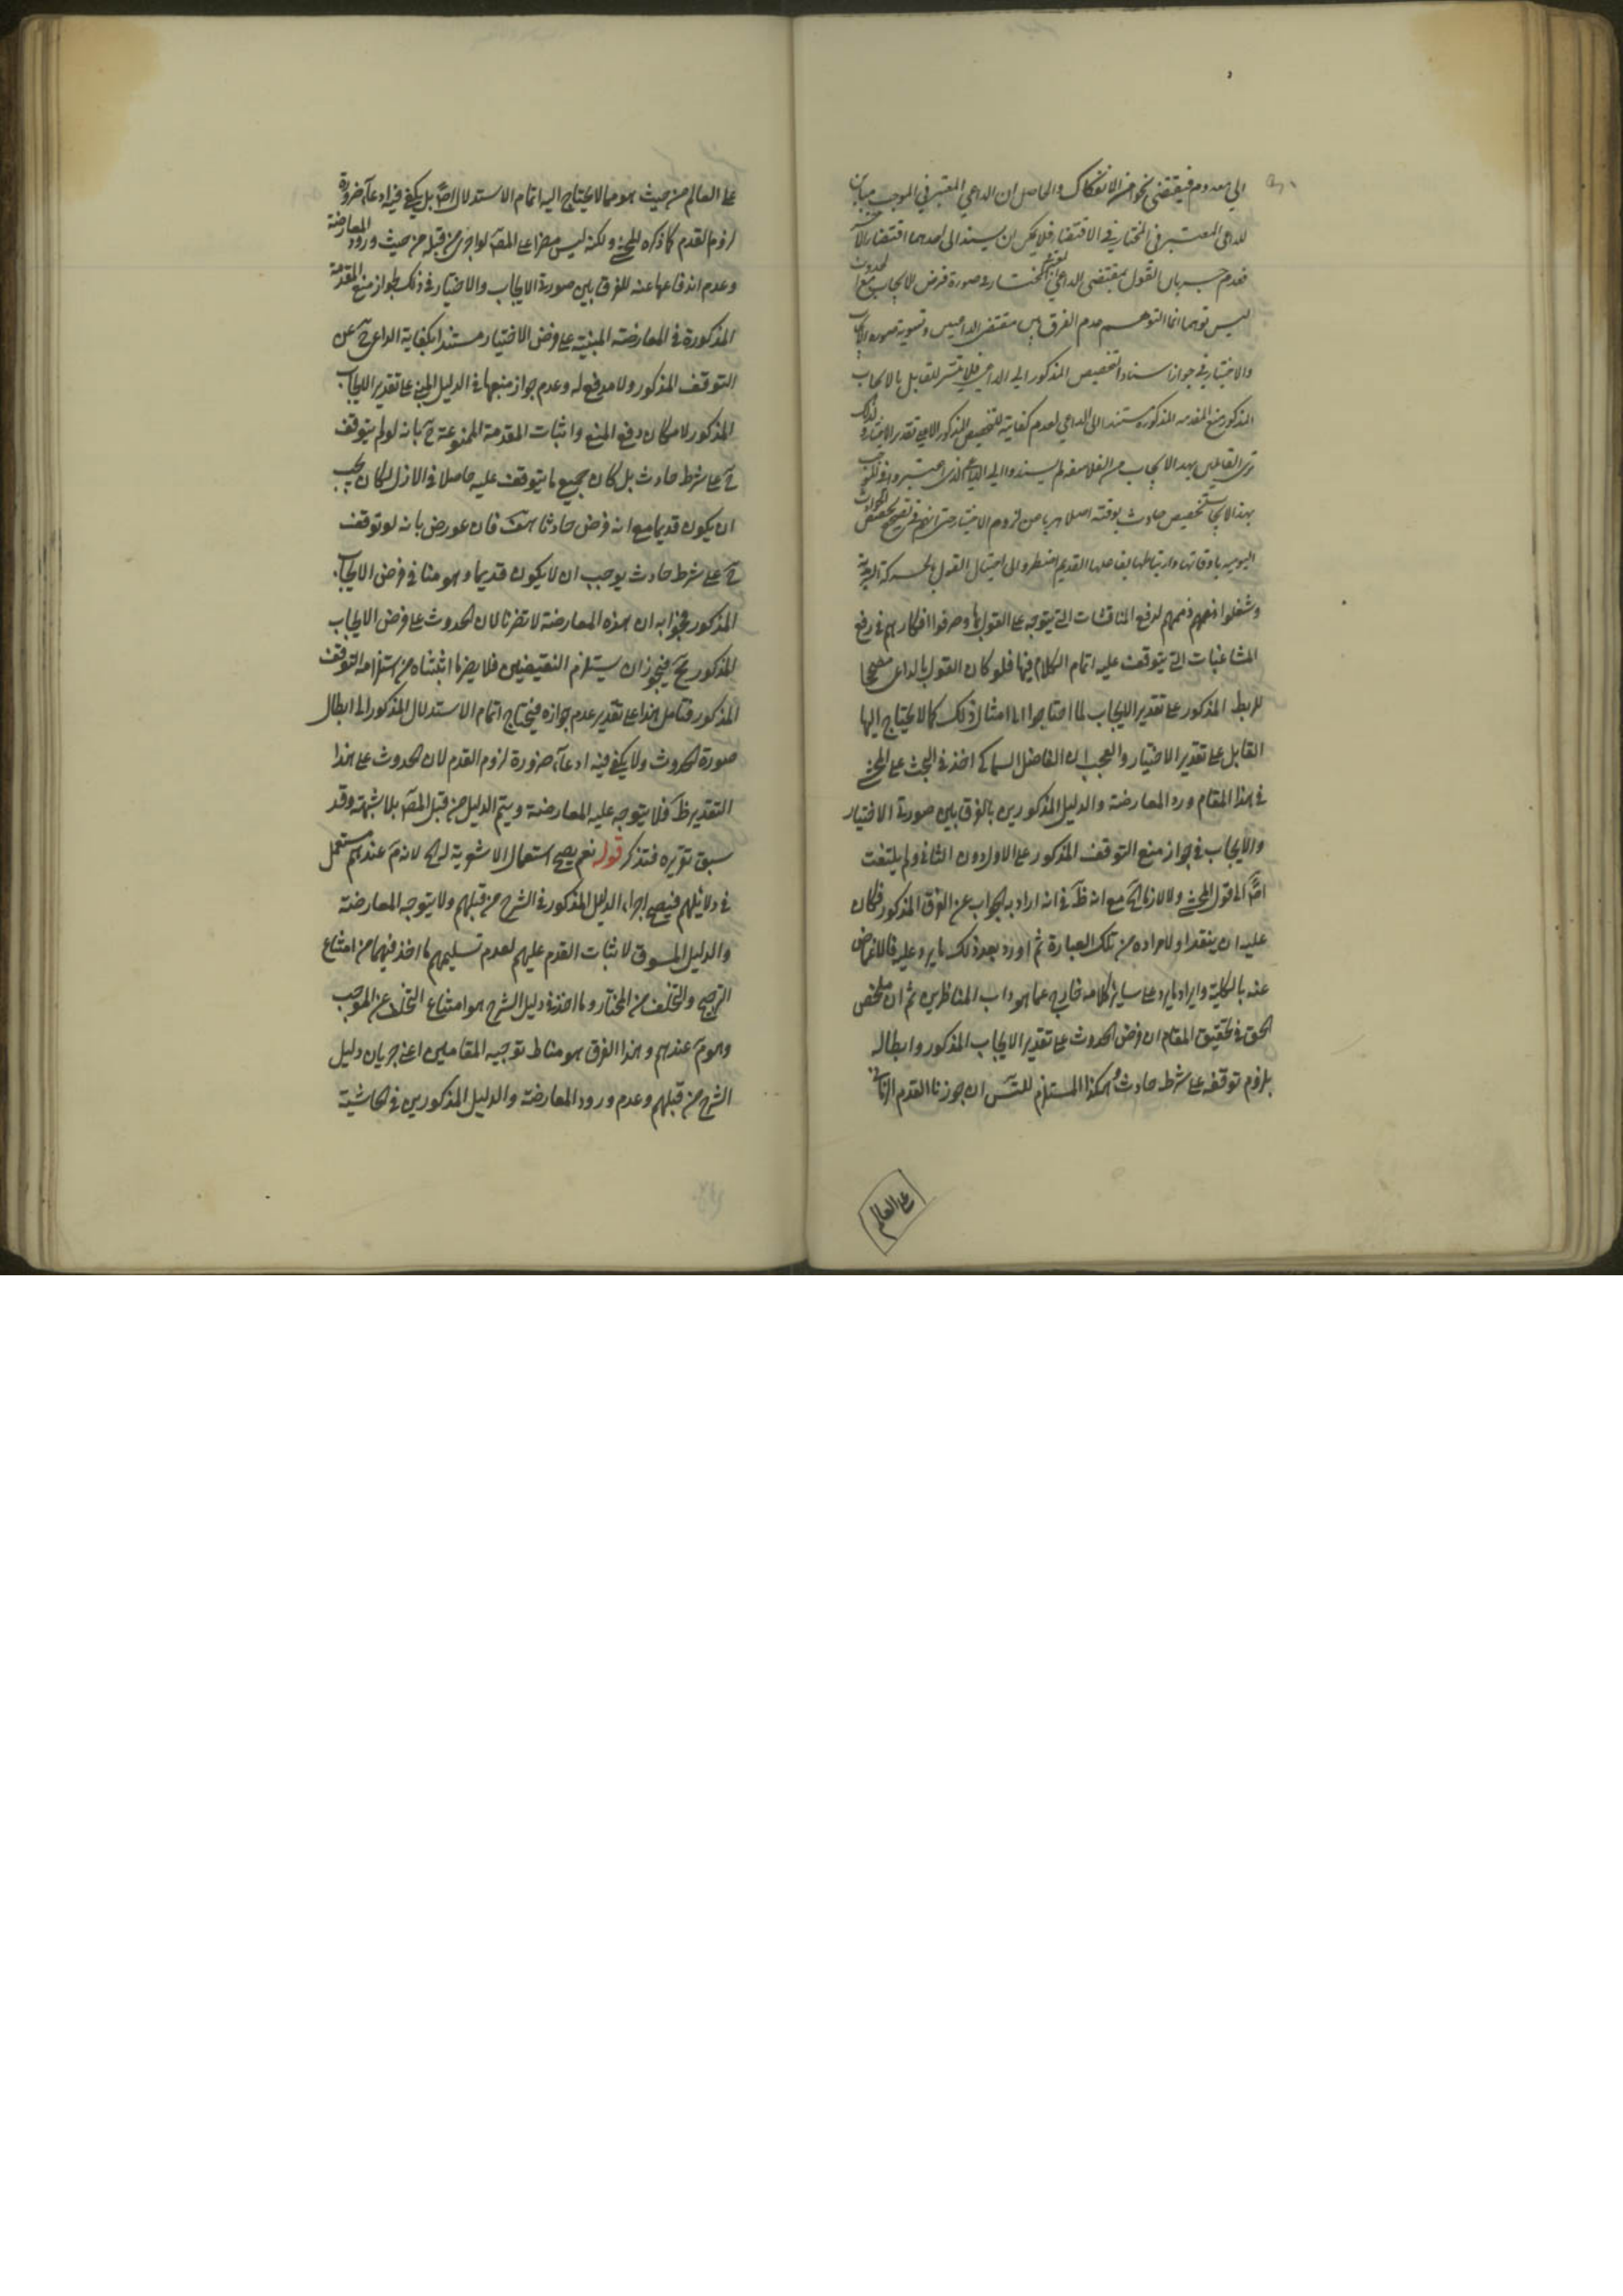 الى معدوم فيقتضى نحوا من الانفكاك والحاصل ان الداعي المعتبر في الموجب مباين
للداعي المعتبر في المختار في الاقتضاء فلا يمكن ان يسند الى احدهما اقتضاء الآخر
فعدم جريان القول بمقتضى الداعي المختار في صورة فرض الايجاب مع الحدوث
ليس توهما انما التوهم عدم الفرق بين مقتضى الداعيين وتسوية صورة الايجاب
والاختيار في جواز اسناد التخصيص المذكور الى الداعي فلا يتيسر للقابل بالايجاب
المذكور منع المقدمة المذكورة مستندا الى الداعي لعدم كفايته للتخصيص المذكور الا على تقدير الاختيار ولذلك
ترى القايلين بهذا الايجاب من الفلاسفة لم يسندوا الى الداعي الذى اعتبروه في الموجب
بهذا الايجاب تخصيص حادث بوقته اصلا هربا من لزوم الاختيار حتى انهم في تصحيح تخصيص الحوادث
اليومية باوقاتها وارتباطها بفاعلها القديم اضطروا الى احتيال القول بالحركة السرمدية
وشغلوا هممهم لدفع المناقشات التي يتوجه على القول بها وصرفوا افكارهم في رفع
المشاغبات التي يتوقف عليه اتمام الكلام فيها فلو كان القول بالداعي مصححا
للربط المذكور على تقدير الايجاب لما احتاجوا الى امثال ذلك كما لا يحتاج اليها
القابل على تقدير الاختيار والعجب ان الفاضل السماكي اخذ في البحث على المحشي
في هذا المقام ورد المعارضة والدليل المذكورين بالفرق بين صورتي الاختيار
والايجاب في جواز منع التوقف المذكور على الاول دون الثاني ولم يلتفت
اصلا الى قول المحشي ولا لازما الخ مع انه ظ في انه اراد به الجواب عن الفرق المذكور فكان
عليه ان ينقد اولا مراده من تلك العبارة ثم اورد بعد ذلك ما يرد عليه فالاغماض
عنه بالكلية وايراد ما يرد على ساير كلامه خارج عما هو داب المناظرين ثم ان ملخص
الحق في تحقيق المقام ان فرض الحدوث على تقدير الايجاب المذكور وابطاله
بلزوم توقفه على شرط حادث وهكذا المستلزم للتس ان جوزنا القدم الزماني
على العالم
على العالم من حيث هو مما لا يحتاج اليه اتمام الاستدلال اصلا بل يكفي فيه ادعاء ضرورة
لزوم القدم كما ذكره المحشي ولكنه ليس مضرا على المص لو اجرى من قبله من حيث ورود المعارضة
وعدم اندفاعها عنه للفرق بين صورتي الايجاب والاختيار في ذلك بجواز منع المقدمة
المذكورة في المعارضة المبنية على فرض الاختيار مستندا بكفاية الداعي ح عن
التوقف المذكور ولا مدفع له وعدم جواز منعها في الدليل المبني على تقدير الايجاب
المذكور لامكان دفع المنع واثبات المقدمة الممنوعة ح بانه لو لم يتوقف
ح على شرط حادث بل كان جميع ما يتوقف عليه حاصلا في الازل لكان يجب
ان يكون قديما مع انه فرض حادثا هف فان عورض بانه لو توقف
ح على شرط حادث يوجب ان لا يكون قديما وهو مناف لفرض الايجاب
المذكور فجوابه ان هذه المعارضة لا تضرنا لان الحدوث على فرض الايجاب
المذكور مح فيجوز ان يستلزم النقيضين فلا يضر ما اثبتناه من استلزامه التوقف
المذكور فتامل هذا على تقدير عدم جوازه فيحتاج اتمام الاستدلال المذكور الى ابطال
صورة الحدوث ولا يكفي فيه ادعاء ضرورة لزوم القدم لان الحدوث على هذا
التقدير ظ فلا يتوجه عليه المعارضة ويتم الدليل من قبل المص بلا شبهة وقد
سبق تقريره فتذكر قوله نعم يصح استعمال الاشعرية له الخ لانه م عندهم مستعمل
في دلائلهم فيصح اجراء الدليل المذكور في الشرح من قبلهم ولا يتوجه المعارضة
والدليل المسوق لاثبات القدم عليهم لعدم تسليمهم ما اخذ فيهما من امتناع
الترجيح والتخلف من المختار وما اخذ في دليل الشرح هو امتناع التخلف عن الموجب
وهو م عندهم وهذا الفرق هو مناط توجيه المقامين اعني جريان دليل
الشرح من قبلهم وعدم ورود المعارضة والدليل المذكورين في الحاشية